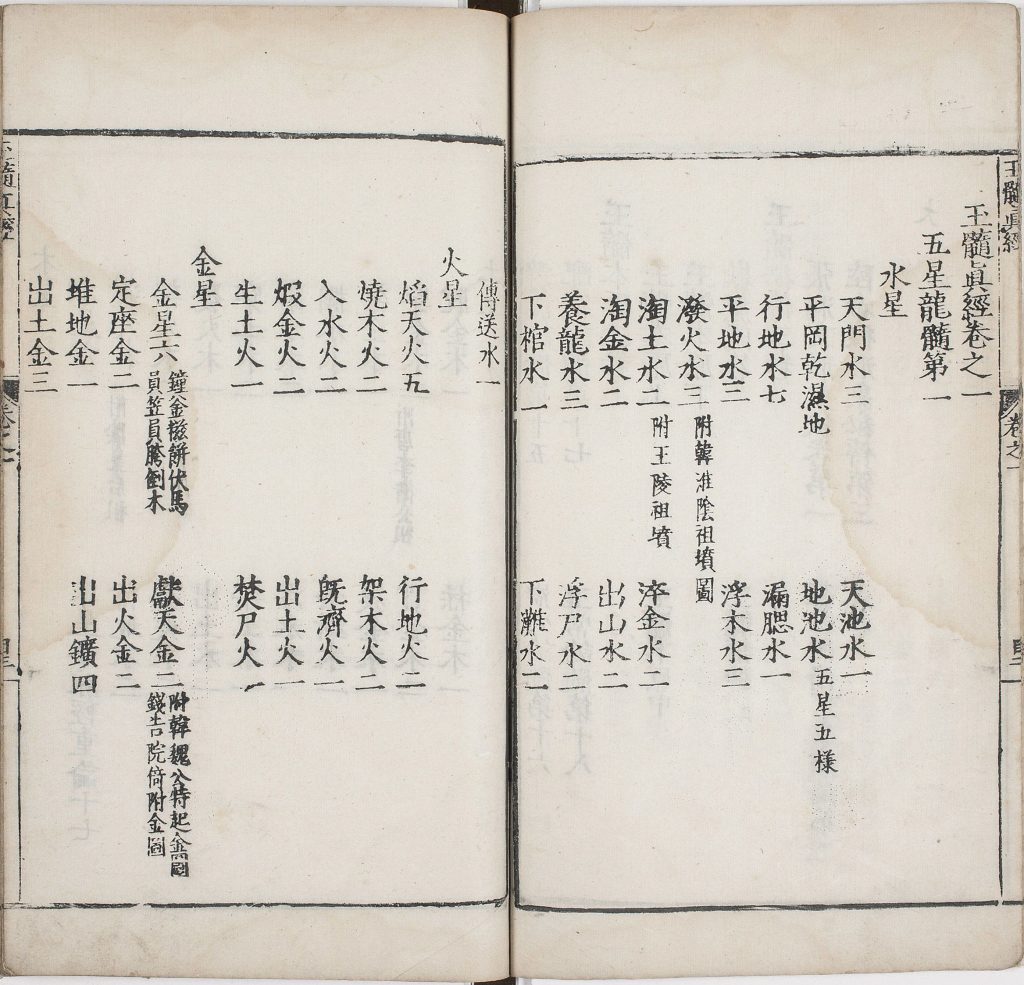 玉髓眞經
卷之一
玉髓眞經卷之一
五星龍髓第一
水星
天門水三 天池水一
平岡乾濕地 地池水五星五様
行地水七 漏腮水一
平地水三 浮木水三
潑火水三附韓淮陰祖墳圖
淘土水二附王陵祖墳 淬金水二
淘金水二 出山水二
養龍水三 浮尸水二
下棺水一 下灘水二
傳送水一
火星
焰天火五 行地火二
燒木火二 架木火二
入水火二 旣濟火一
煆金火二 出土火一
生土火一 焚尸火一
金星
金星六鐘釡糍餅伏馬
員笠員騰倒木 獻天金二附韓魏公特起金圖
錢吉院倚附金圖
定座金二 出火金二
堆地金一 出山鑛四
出土金三
玉髓眞經
卷之一